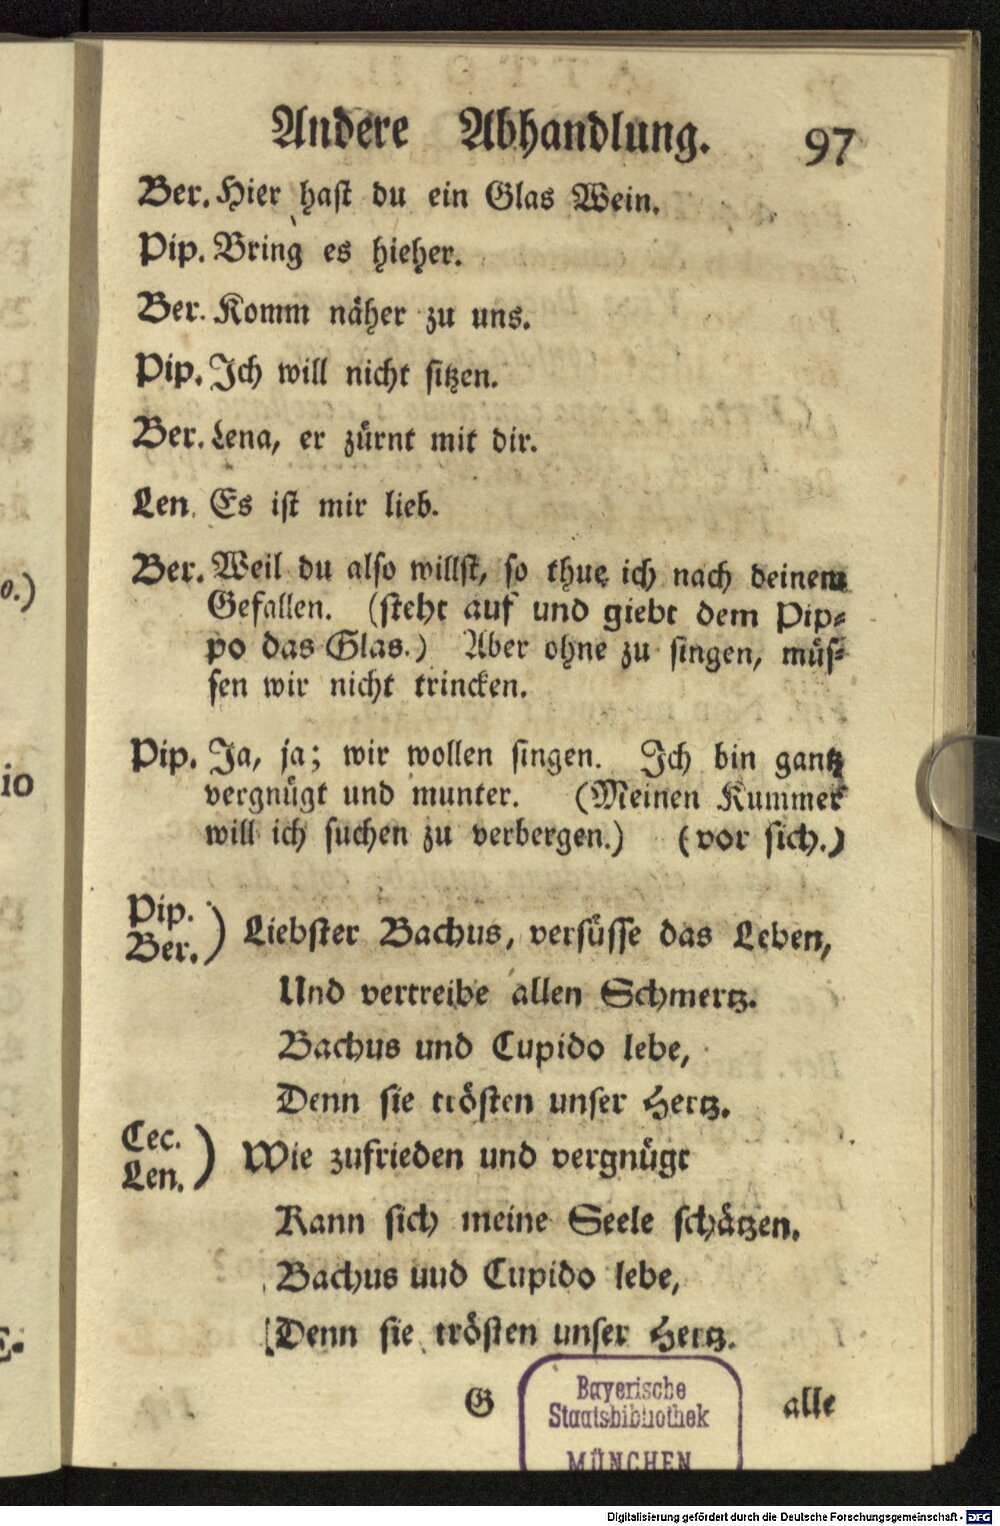 Andere Abhandlung. 97
Ber. Hier hast du ein Glas Wein.
Pip. Bring es hieher.
Ber. Komm näher zu uns.
Pip. Ich will nicht sitzen.
Ber. Lena, er zürnt mit dir.
Len. Es ist mir lieb.
Ber. Weil du also willst, so thue ich nach deinem
Gefallen. (steht auf und giebt dem Pip-
po das Glas.) Aber ohne zu singen, müs-
sen wir nicht trincken.
Pip. Ja, ja; wir wollen singen. Ich bin gantz
vergnügt und munter. (Meinen Kummer
will ich suchen zu verbergen.) (vor sich.)
Pip.
Ber.) Liebster Bachus, versüsse das Leben,
Und vertreibe allen Schmertz.
Bachus und Cupido lebe,
Denn sie trösten unser Hertz.
Cec.
Len.) Wie zufrieden und vergnügt
Kann sich meine Seele schätzen.
Bachus uud Cupido lebe,
Denn sie trösten unser Hertz.
G alle
Bayerische
Staatsbibliothek
MÜNCHEN
o.)
io
E.
Digitalisierung gefördert durch die Deutsche Forschungsgemeinschaft - DFG